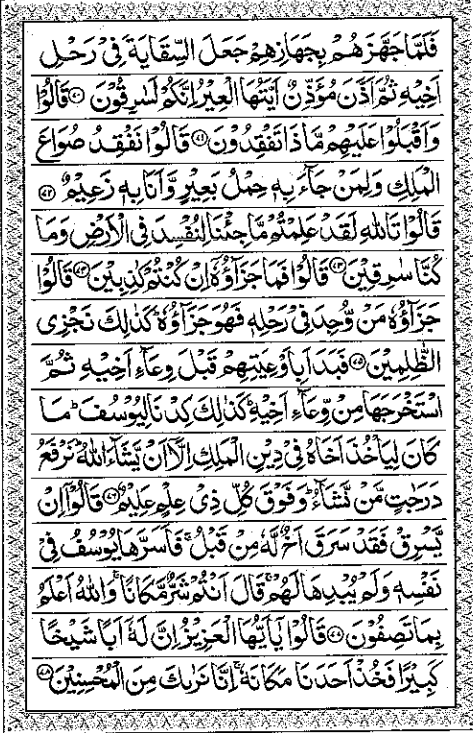 فَلَمَّا جَهَّزَهُمْ بِجَهَازِهِمْ جَعَلَ السِّقَايَةَ فِىْ رَحْلِ
اَخِيْهِ ثُمَّ اَذَّنَ مُؤَذِّنٌ اَيَّتُهَا الْعِيْرُ اِنَّكُمْ لَسٰرِقُوْنَ ﴿۷۰﴾ قَالُوْا
وَاَقْبَلُوْا عَلَيْهِمْ مَّاذَا تَفْقِدُوْنَ ﴿۷۱﴾ قَالُوْا نَفْقِدُ صُوَاعَ
الْمَلِكِ وَلِمَنْ جَآءَ بِهٖ حِمْلُ بَعِيْرٍ وَّاَنَا بِهٖ زَعِيْمٌ ﴿۷۲﴾
قَالُوْا تَاللّٰهِ لَقَدْ عَلِمْتُمْ مَّا جِئْنَا لِنُفْسِدَ فِى الْاَرْضِ وَمَا
كُنَّا سٰرِقِيْنَ ﴿۷۳﴾ قَالُوْا فَمَا جَزَآؤُهٗۤ اِنْ كُنْتُمْ كٰذِبِيْنَ ﴿۷۴﴾ قَالُوْا
جَزَآؤُهٗ مَنْ وُّجِدَ فِىْ رَحْلِهٖ فَهُوَ جَزَآؤُهٗ ؕ كَذٰلِكَ نَجْزِى
الظّٰلِمِيْنَ ﴿۷۵﴾ فَبَدَاَ بِاَوْعِيَتِهِمْ قَبْلَ وِعَآءِ اَخِيْهِ ثُمَّ
اسْتَخْرَجَهَا مِنْ وِّعَآءِ اَخِيْهِ ؕ كَذٰلِكَ كِدْنَا لِيُوْسُفَ ؕ مَا
كَانَ لِيَاْخُذَ اَخَاهُ فِىْ دِيْنِ الْمَلِكِ اِلَّاۤ اَنْ يَّشَآءَ اللّٰهُ ؕ نَرْفَعُ
دَرَجٰتٍ مَّنْ نَّشَآءُ ؕ وَفَوْقَ كُلِّ ذِىْ عِلْمٍ عَلِيْمٌ ﴿۷۶﴾ قَالُوْۤا اِنْ
يَّسْرِقْ فَقَدْ سَرَقَ اَخٌ لَّهٗ مِنْ قَبْلُ ۚ فَاَسَرَّهَا يُوْسُفُ فِىْ
نَفْسِهٖ وَلَمْ يُبْدِهَا لَهُمْ ۚ قَالَ اَنْتُمْ شَرٌّ مَّكَانًا ۚ وَاللّٰهُ اَعْلَمُ
بِمَا تَصِفُوْنَ ﴿۷۷﴾ قَالُوْا يٰۤاَيُّهَا الْعَزِيْزُ اِنَّ لَهٗۤ اَبًا شَيْخًا
كَبِيْرًا فَخُذْ اَحَدَنَا مَكَانَهٗ ۚ اِنَّا نَرٰىكَ مِنَ الْمُحْسِنِيْنَ ﴿۷۸﴾